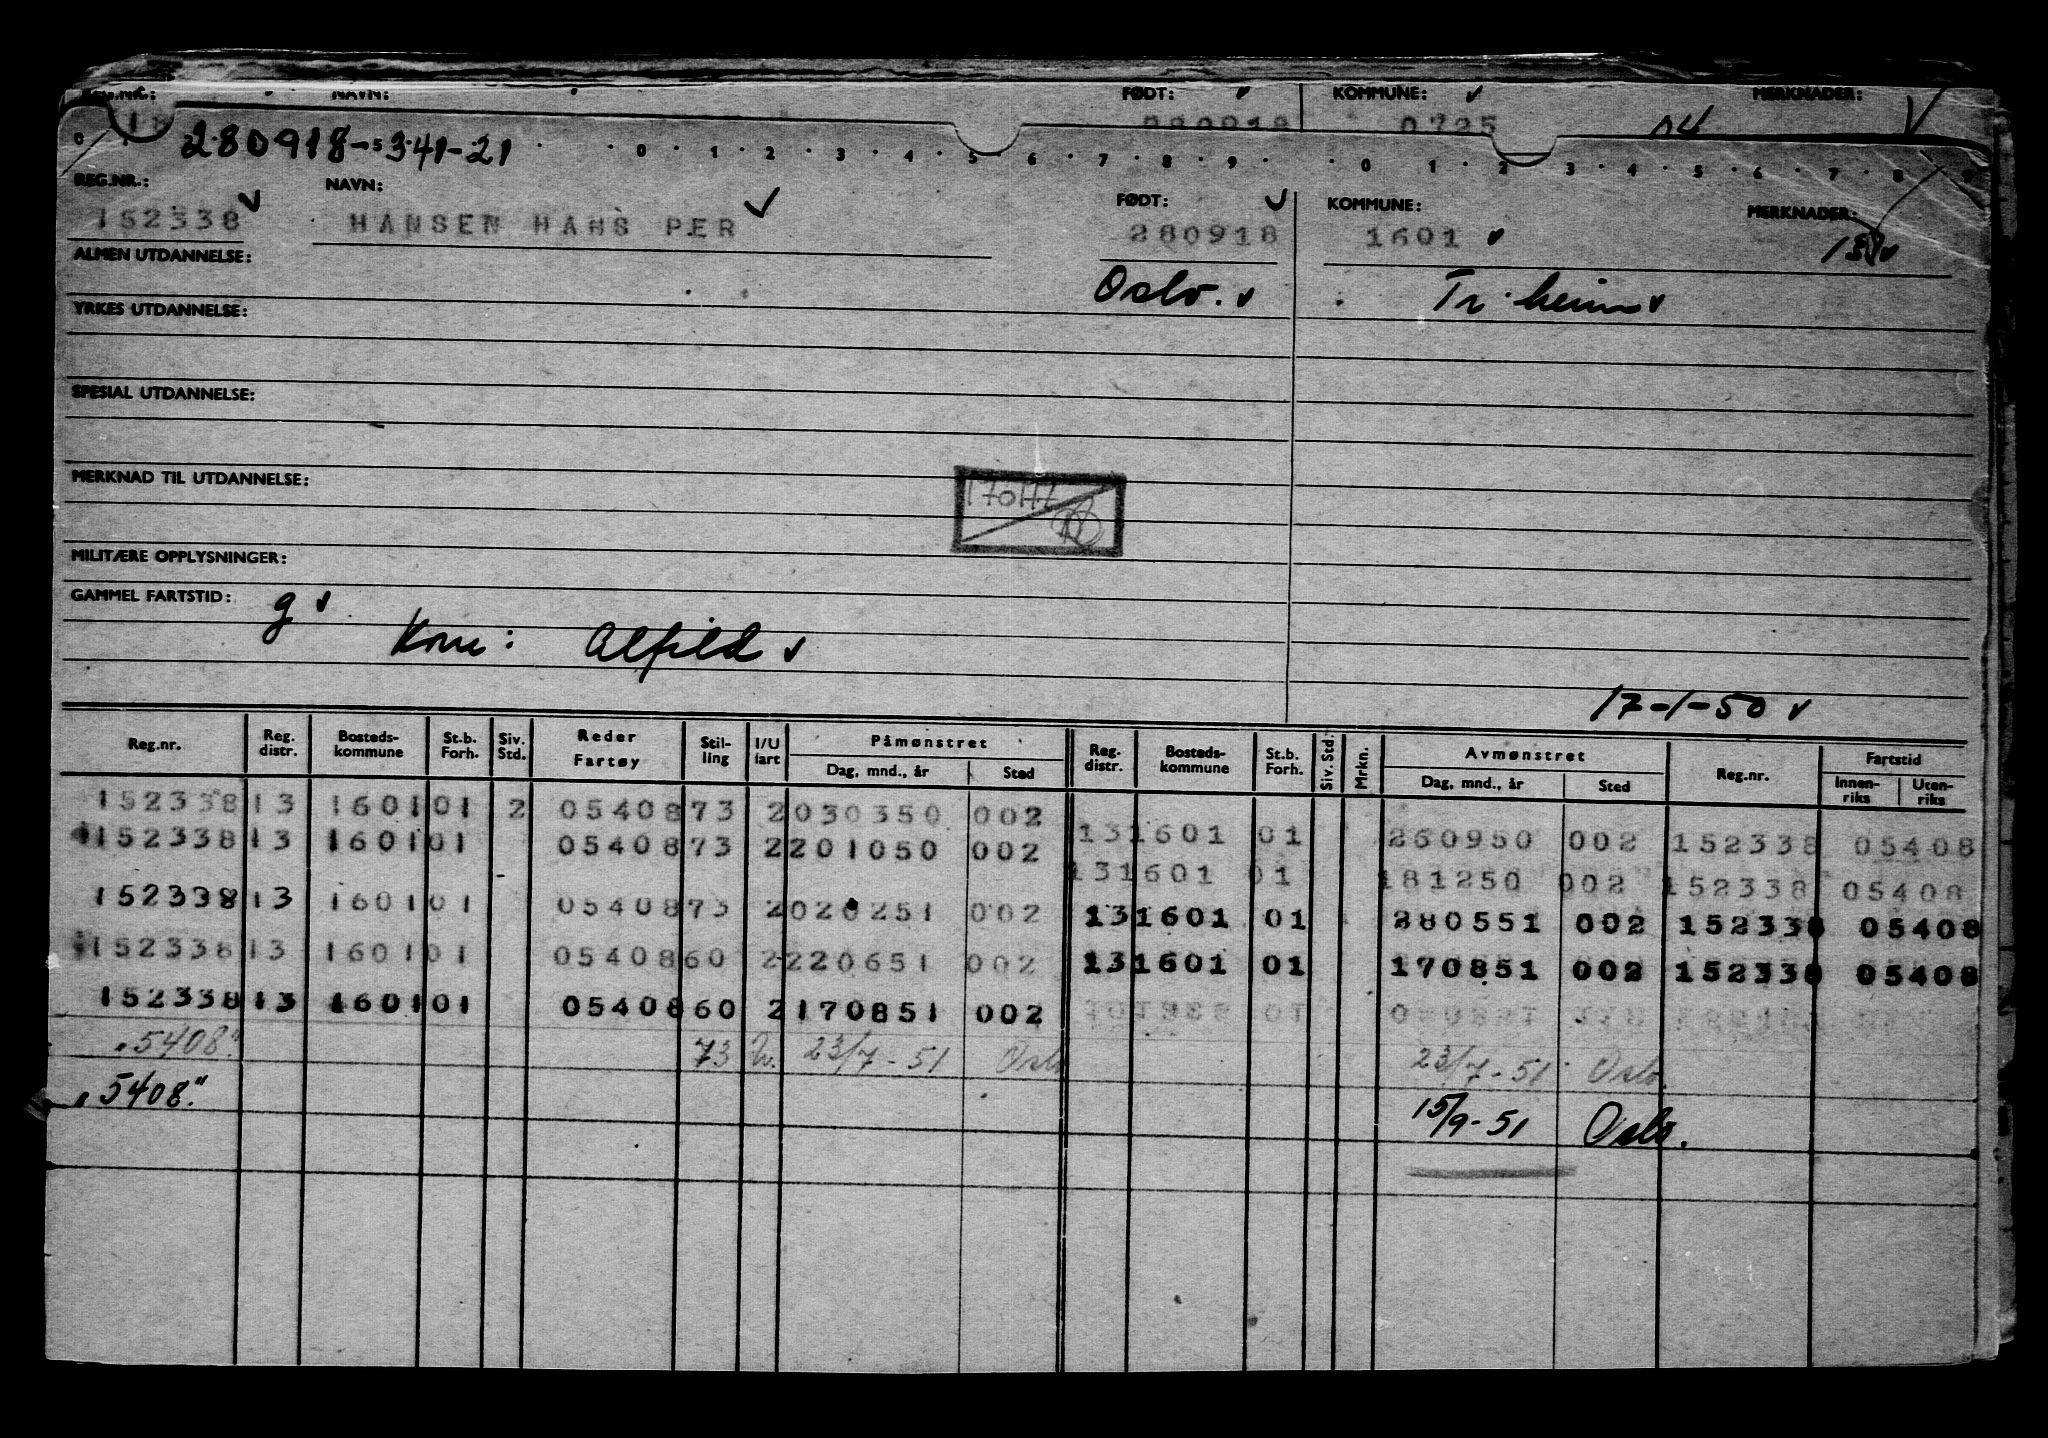 REG.NR.: NAVN: FØDT: KOMMUNE: MERKNADER:
280918 0725
280918-341-21
0 1 2 3 4 5 6 7 8 9 0 1 2 3 4 5 6 7 8 9
REG.NR.: NAVN: FØDT: KOMMUNE: MERKNADER:
152338 HANSEN HANS PER 280918 1601
ALMEN UTDANNELSE: Oslo. Tr.heim
YRKES UTDANNELSE:
SPESIAL UTDANNELSE:
MERKNAD TIL UTDANNELSE:
MILITÆRE OPPLYSNINGER:
GAMMEL FARTSTID: g
Kone: Alfild
17-1-50
Reg.nr. Reg. distr. Bosteds-kommune St.b. Forh. Siv. Std. Reder Fartøy Stil-ling I/U fart Påmønstret Dag, mnd., år Sted Reg. distr. Bosteds-kommune St.b. Forh. Siv. Std. Mrkn. Avmønstret Dag, mnd., år Sted Reg.nr. Fartstid Innen-riks Uten-riks
152338 13 1601 01 2 05408 73 2 030350 002 13 1601 01 260950 002 152338 05408
152338 13 1601 01 05408 73 2 201050 002 13 1601 01 181250 002 152338 05408
152338 13 1601 01 05408 73 2 020251 002 13 1601 01 280551 002 152338 05408
152338 13 1601 01 05408 60 2 220651 002 13 1601 01 170851 002 152338 05408
152338 13 1601 01 05408 60 2 170851 002
"5408" 73 U. 23/7-51 Oslo 23/7-51 Oslo.
"5408" 15/9-51 Oslo.